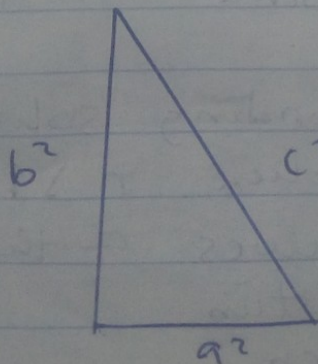 b²
c
a²